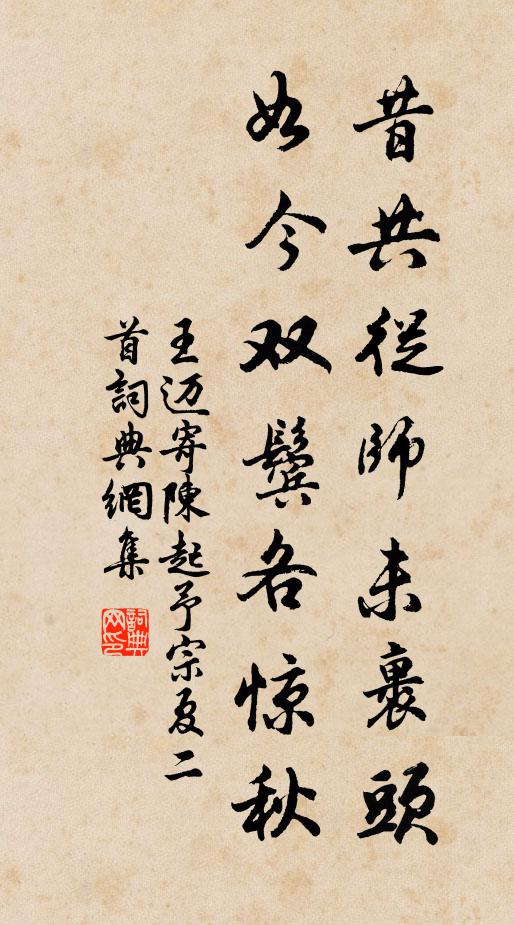 昔共從師未裹頭
如今双鬓各惊秋
王迈寄陳起予宗夏二
首詞典網集
詞典
网印